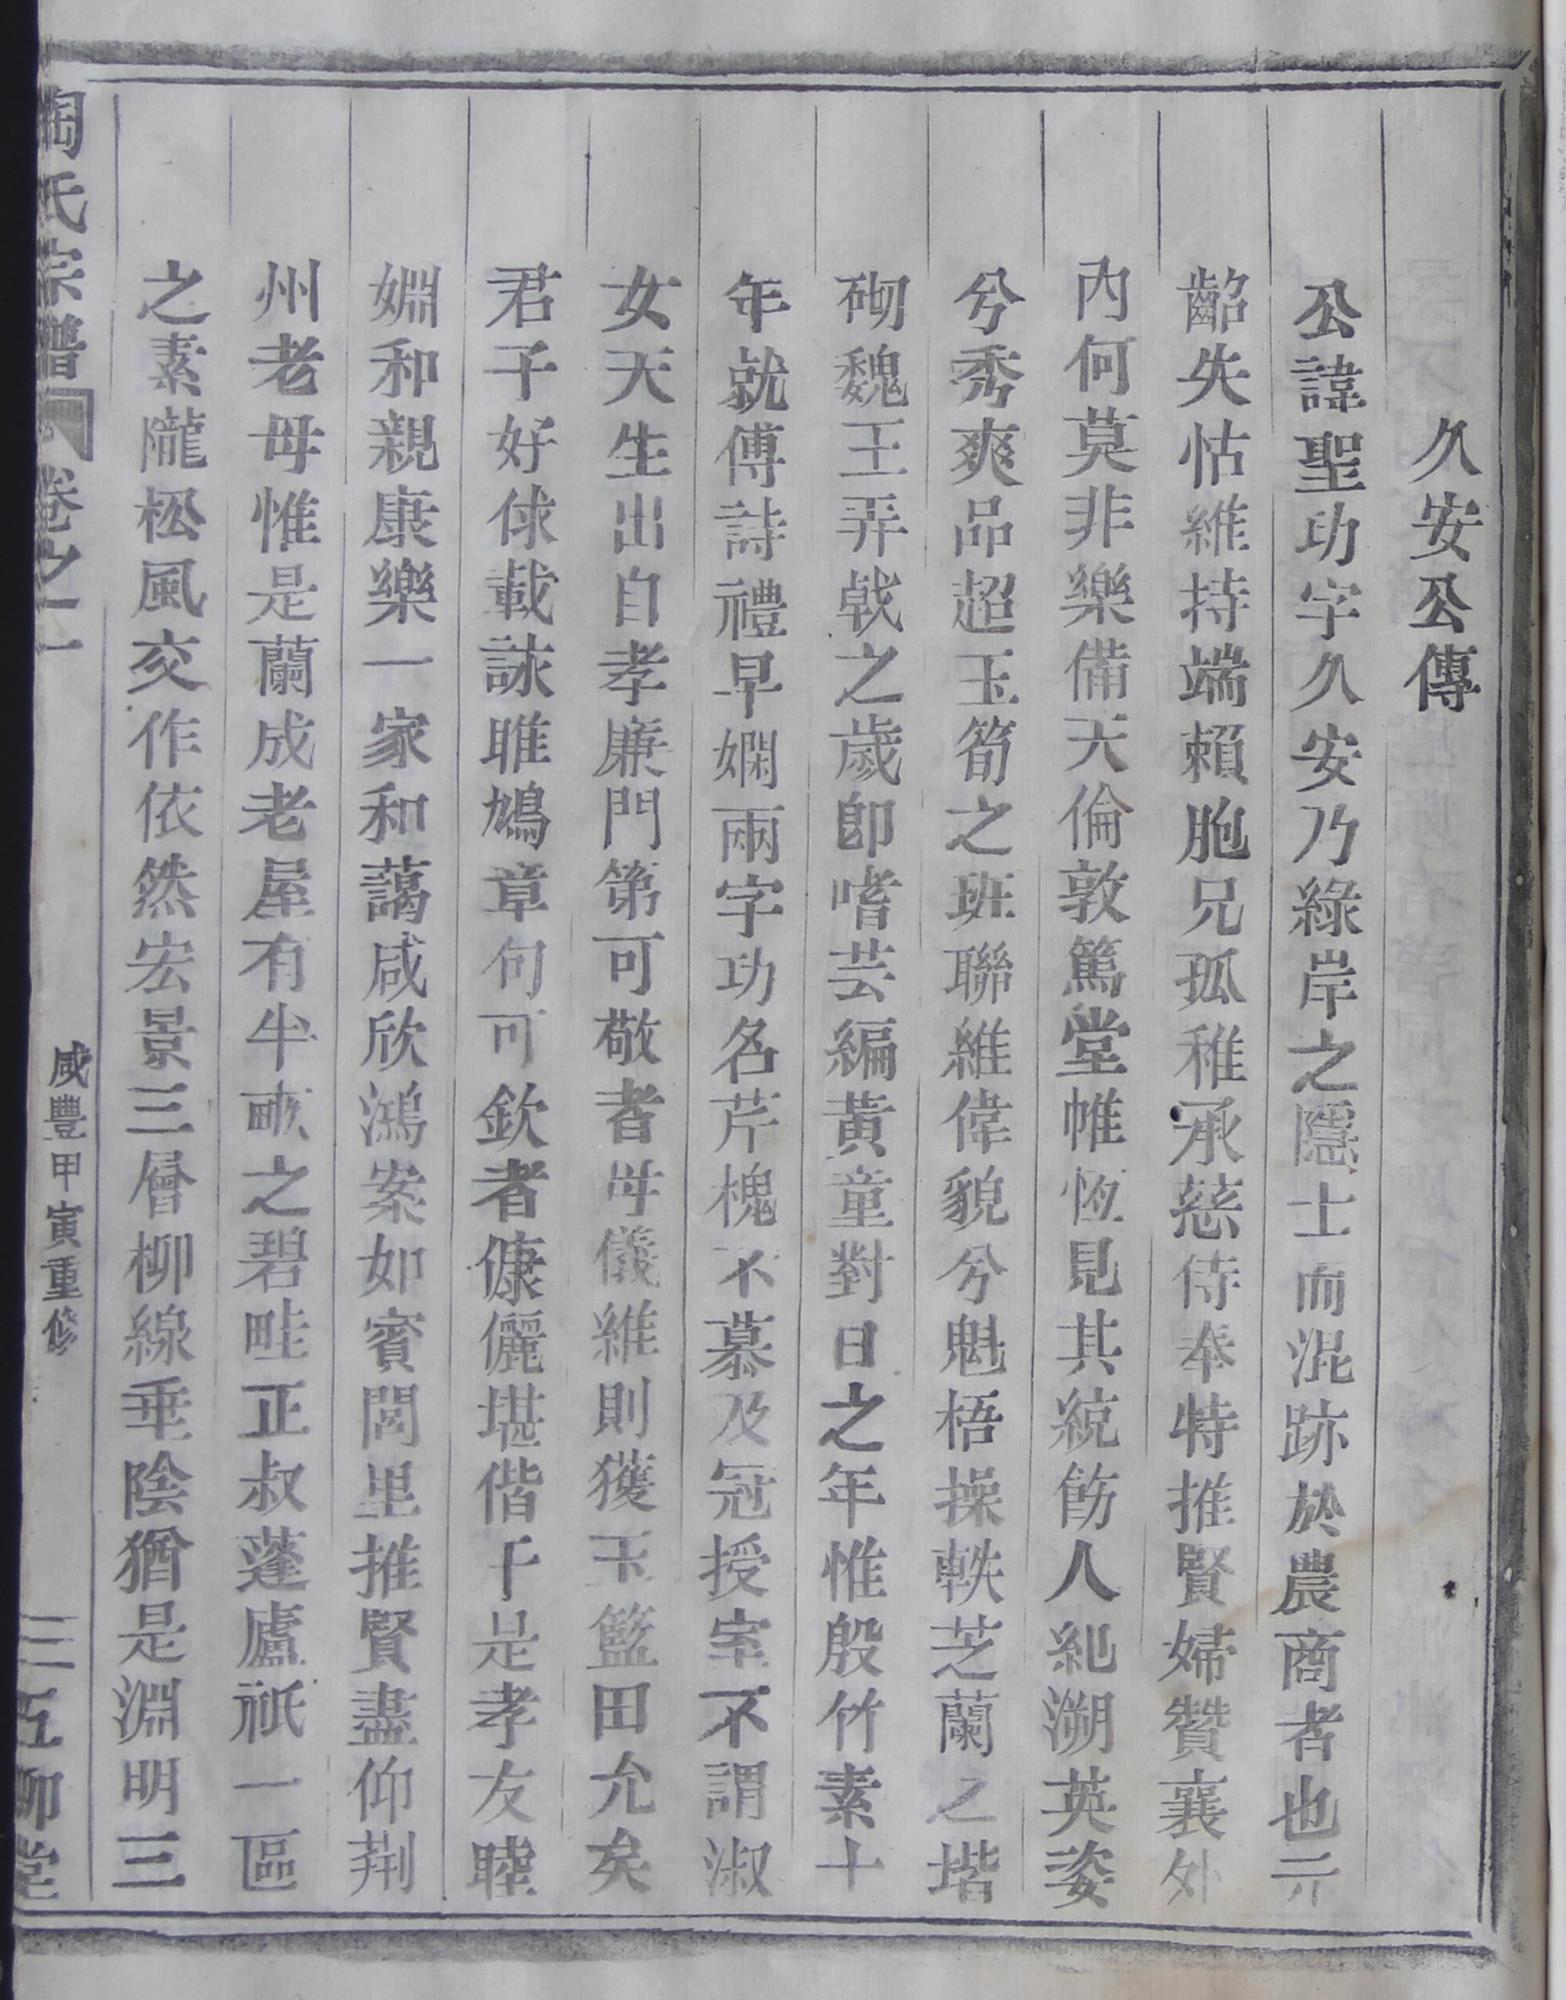 久安公傳
公諱聖功字久安乃綠岸之隱士而混跡於農商者也元
齠失怙維持端賴胞兄孤稚承慈侍奉特推賢婦贊襄外
內何莫非樂備天倫敦篤堂帷恆見其統飭人紀溯英姿
兮秀爽品超玉筍之班聯維偉貌兮魁梧操軼芝蘭之堦
砌魏王弄戟之歲卽嗜芸編黃童對日之年惟殷竹素十
年就傅詩禮早嫻兩字功名芹槐不慕及冠授室不謂淑
女天生出自孝廉門第可敬者母儀維則獲玉籃田允矣
君子好俅載詠雎鳩章句可欽者慷儷堪偕于是孝友睦
婣和親康樂一家和藹咸欣鴻案如賓閭里推賢盡仰荆
州老母惟是蘭成老屋有半畝之碧畦正叔蓬廬祇一區
之素隴松風交作依然宏景三層柳線垂陰猶是淵明三
陶氏宗譜 卷之一 咸豐甲寅重修 三 五柳堂